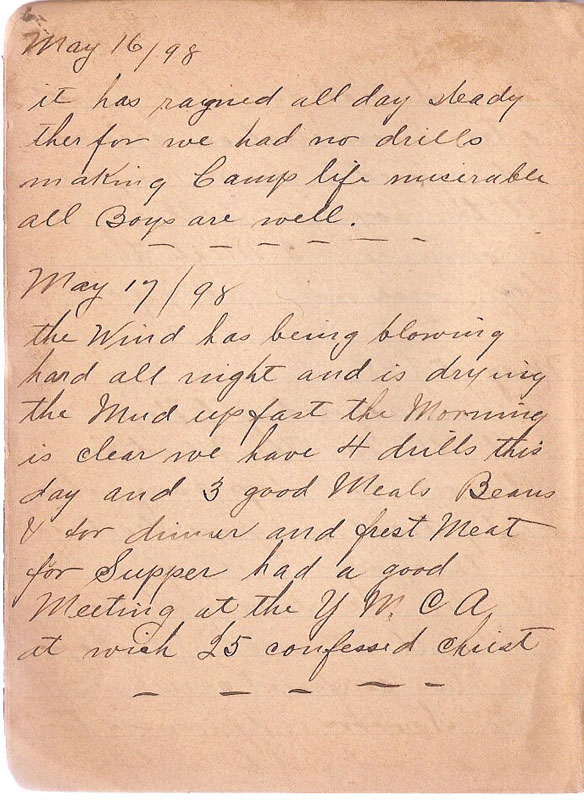 May 16/98
it has rayned all day steady
therfor we had no drills
making Camp life miserable
all Boys are well.
May 17/98
the Wind has being blowing
hard all night and is drying
the Mud up fast the Morning
is clear we have 4 drills this
day and 3 good Meals Beans
& for dinner and frest Meat
for Supper had a good
Meeting at the Y M. C A,
at wich 25 confessed Christ